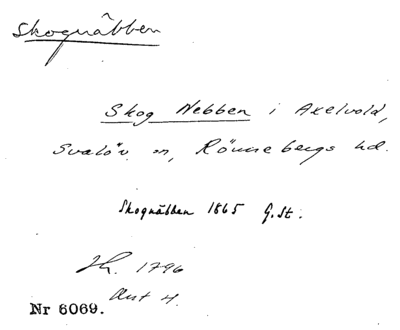 Skognäbben
Skog Nebben i Axelvold,
Svalöv sn, Rönnebergs hd.
Skognäbben 1865 G.St.
1796
Akt 4.
Nr 6069.